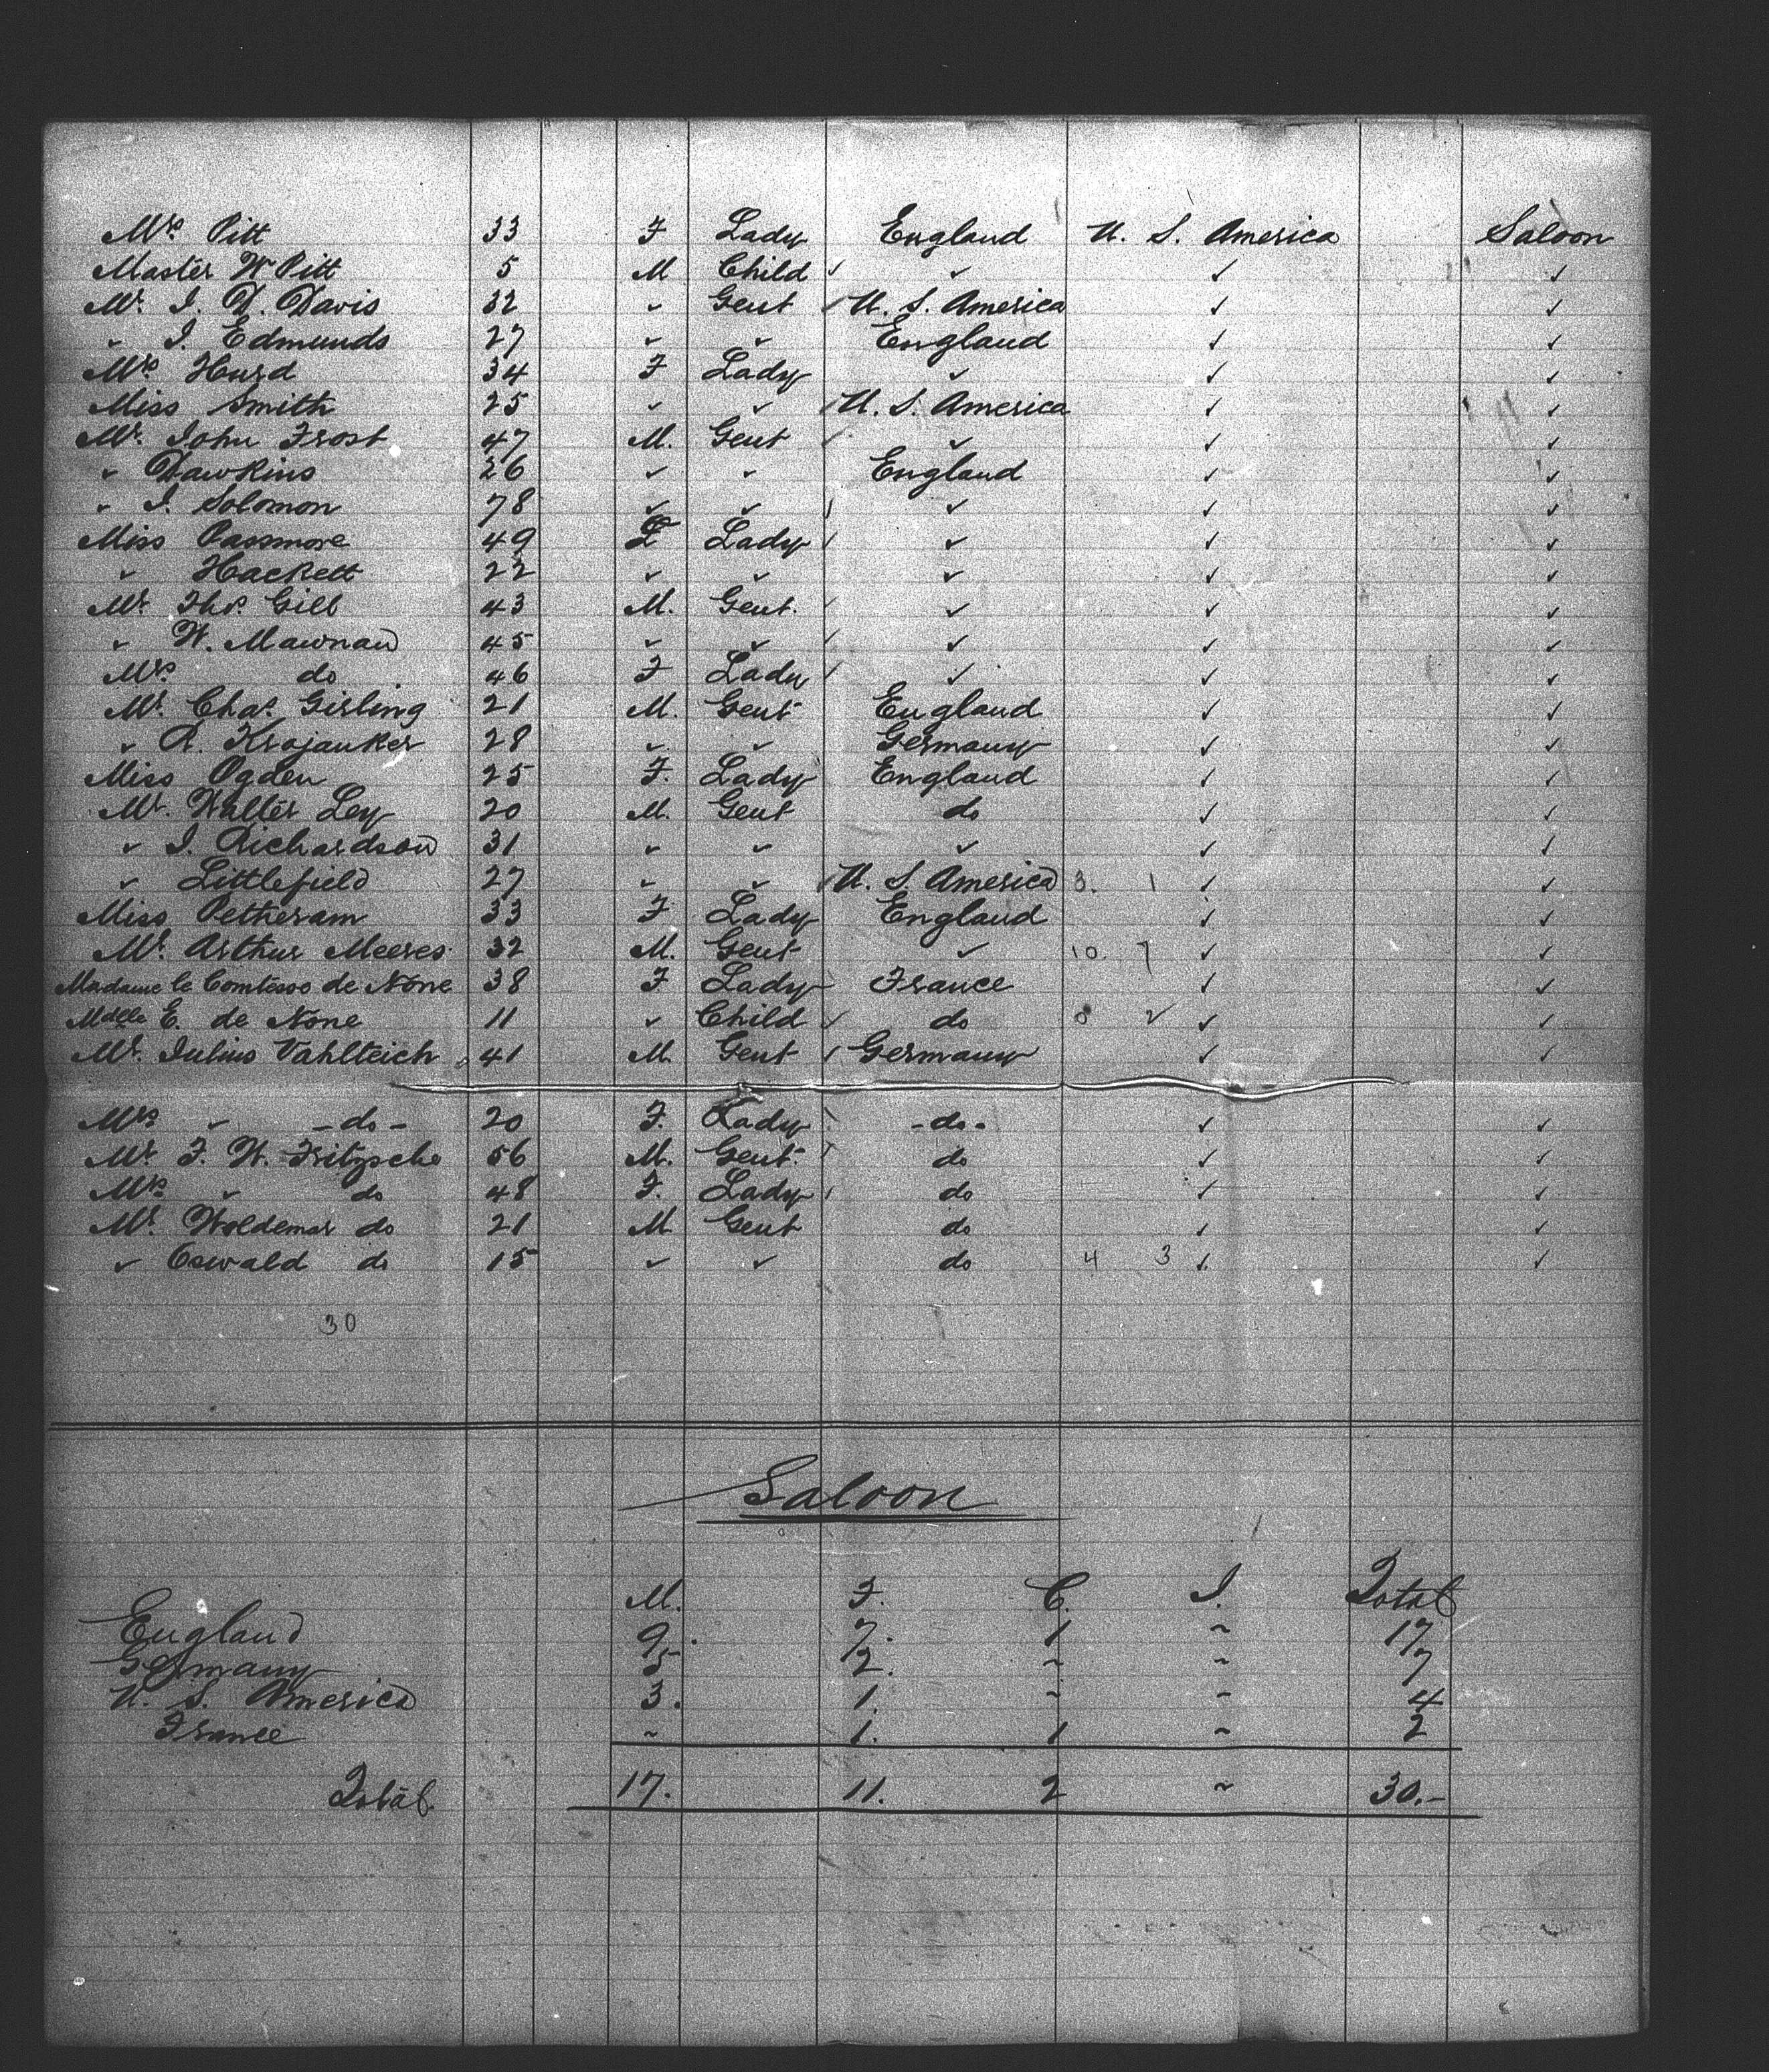 Mrs. Pitt 33 F Lady England U. S. America Saloon
Master W Pitt 5 M Child ✓ ✓ ✓ ✓
Mr. I. D. Davis 32 " Gent ✓ U. S. America ✓ ✓
" I. Edmunds 27 " " England ✓ ✓
Mrs. Hurd 34 F Lady " ✓ ✓
Miss Smith 25 " " U. S. America ✓ ✓
Mr. John Frost 47 M. Gent ✓ " ✓ ✓
" Dawkins 26 " " England ✓ ✓
" I. Solomon 78 " " " ✓ ✓
Miss Passmore 49 F Lady " ✓ ✓
" Hackett 22 " " " ✓ ✓
Mr. Thos. Gill 43 M. Gent. " ✓ ✓
" W. Mawnan 45 " " " ✓ ✓
Mrs. do 46 F Lady " ✓ ✓
Mr. Chas. Girling 21 M. Gent England ✓ ✓
" R. Krojanker 28 " " Germany ✓ ✓
Miss Ogden 25 F. Lady England ✓ ✓
Mr. Walter Ley 20 M. Gent do ✓ ✓
" I. Richardson 31 " " " ✓ ✓
" Littlefield 27 " " U. S. America 3. 1 ✓ ✓
Miss Petheram 33 F Lady England ✓ ✓
Mr. Arthur Meeres 32 M. Gent " 10. 7 ✓ ✓
Madame la Comtesse de None 38 F Lady France ✓ ✓
Mdlle E. de None 11 " Child ✓ do 0 2 ✓ ✓
Mr. Julius Vahlteich 41 M. Gent Germany ✓ ✓
Mrs. " -do- 20 F. Lady -do- ✓ ✓
Mr. F. W. Fritzsche 56 M. Gent. do ✓ ✓
Mrs. " do 48 F. Lady do ✓ ✓
Mr. Woldemar do 21 M Gent do ✓ ✓
" Oswald do 15 " " do 4 3 ✓ ✓
30
Saloon
M. F. C. I. Total
England 9. 7. 1 " 17
Germany 5 2. " " 7
U. S. America 3. 1. " " 4
France " 1. 1 " 2
Total 17. 11. 2 " 30.-